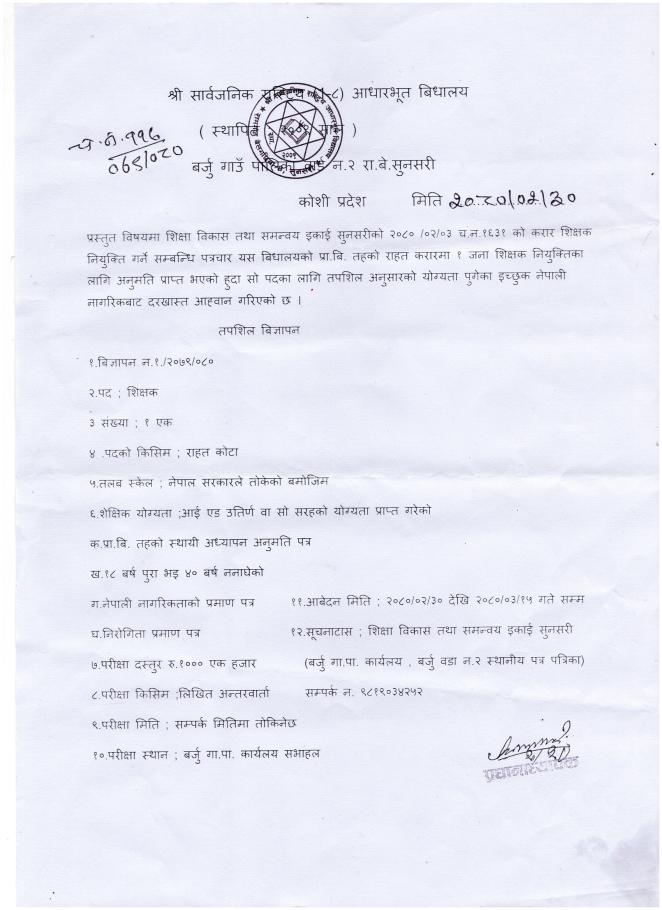 श्री सार्वजनिक (१-८) आधारभूत बिधालय
च.न.११६
०७९/०८०
बर्जु गाउँ न.२ रा.वे.सुनसरी
कोशी प्रदेश मिति २०८०/०२/३०
प्रस्तुत विषयमा शिक्षा विकास तथा समन्वय इकाई सुनसरीको २०८० /०२/०३ च.न.१६३१ को करार शिक्षक
नियुक्ति गर्ने सम्बन्धि पत्रचार यस बिधालयको प्रा.बि. तहको राहत करारमा १ जना शिक्षक नियुक्तिका
लागि अनुमति प्राप्त भएको हुदा सो पदका लागि तपशिल अनुसारको योग्यता पुगेका इच्छुक नेपाली
नागरिकबाट दरखास्त आह्वान गरिएको छ ।
तपशिल बिज्ञापन
१.बिज्ञापन न.१./२०७९/०८०
२.पद ; शिक्षक
३ संख्या ; १ एक
४ .पदको किसिम ; राहत कोटा
५.तलब स्केल ; नेपाल सरकारले तोकेको बमोजिम
६.शेक्षिक योग्यता ;आई एड उतिर्ण वा सो सरहको योग्यता प्राप्त गरेको
क.प्रा.बि. तहको स्थायी अध्यापन अनुमति पत्र
ख.१८ बर्ष पुरा भइ ४० बर्ष ननाघेको
ग.नेपाली नागरिकताको प्रमाण पत्र ११.आबेदन मिति ; २०८०/०२/३० देखि २०८०/०३/१५ गते सम्म
घ.निरोगिता प्रमाण पत्र १२.सूचनाटास ; शिक्षा विकास तथा समन्वय इकाई सुनसरी
७.परीक्षा दस्तुर रु.१००० एक हजार (बर्जु गा.पा. कार्यलय , बर्जु वडा न.२ स्थानीय पत्र पत्रिका)
८.परीक्षा किसिम ;लिखित अन्तरवार्ता सम्पर्क न. ९८१९०३४२५२
९.परीक्षा मिति ; सम्पर्क मितिमा तोकिनेछ
१०.परीक्षा स्थान ; बर्जु गा.पा. कार्यलय सभाहल
प्रधानाध्यापक